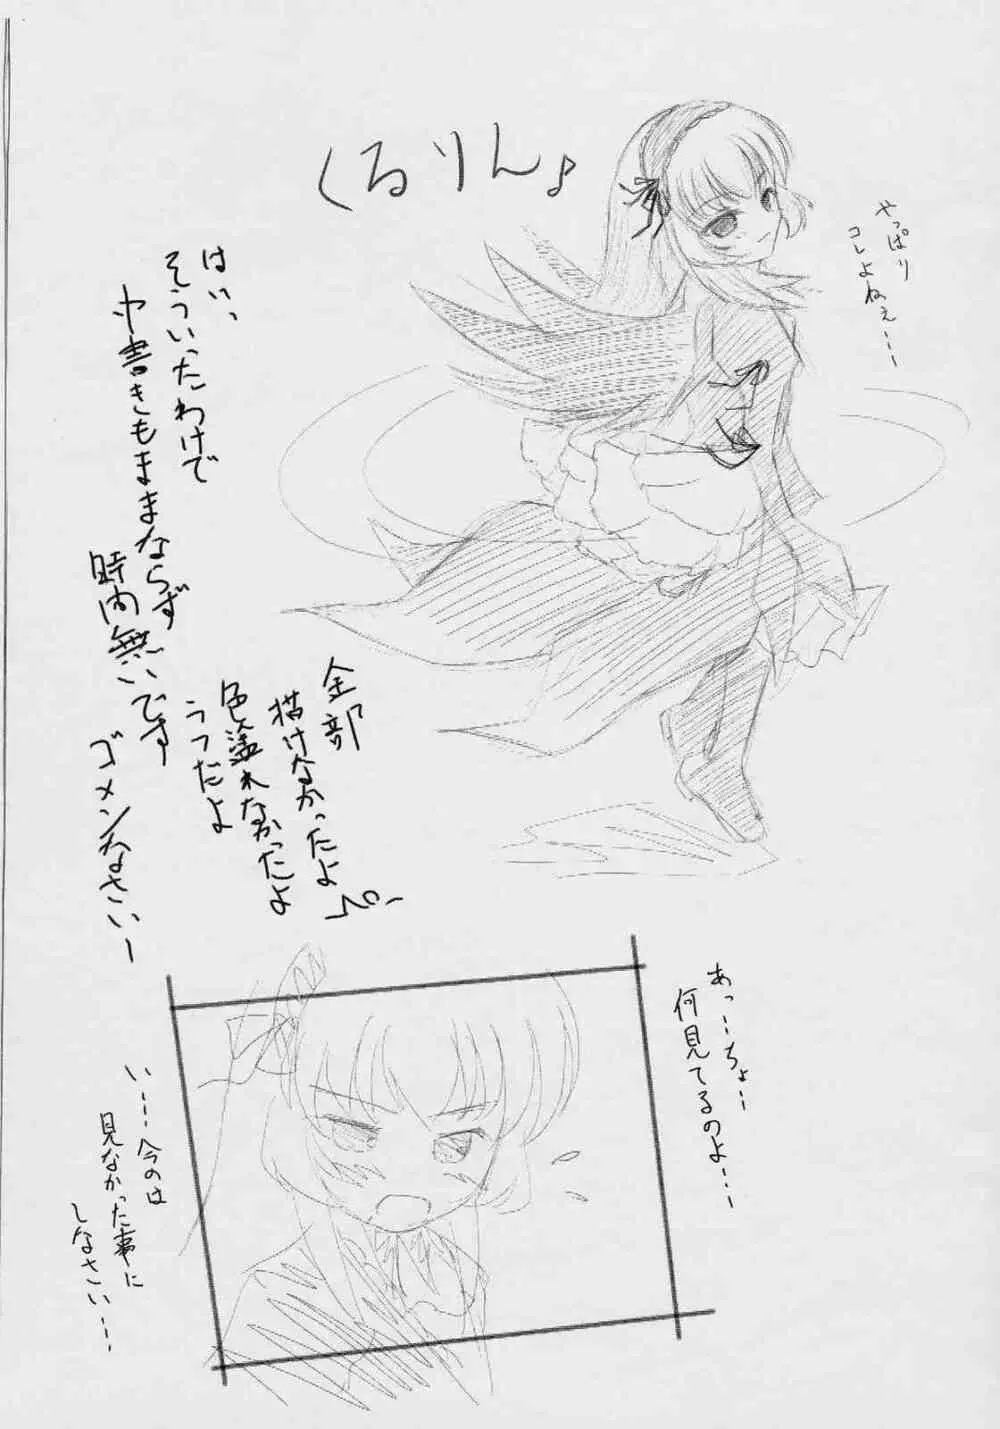 くるりん♪
やっぱり
コレよねぇ…
はいっ
そういったわけで
中書きもままならず
時間無いです
ゴメンなさいー
全部
描けなかったよ
色塗れなかったよ
うつだよ
あっ…ちょ…
何見てるのよ…
い…今のは
見なかった事に
しなさい…